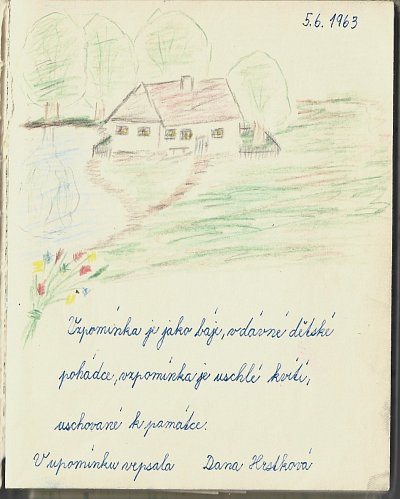 5.6.1963
Vzpomínka je jako báje, v dávné dětské
pohádce, vzpomínka je uschlé kvítí,
uschované k památce.
V upomínku vepsala Dana Hrstková